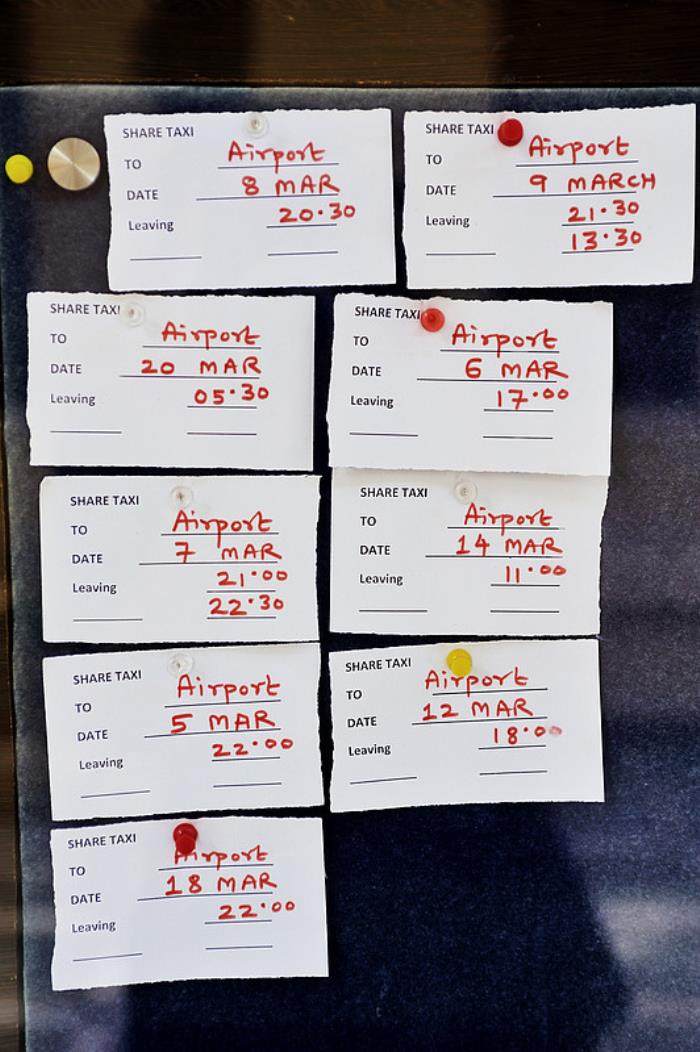 SHARE TAXI
TO Airport
DATE 8 MAR
Leaving 20.30
SHARE TAXI
TO Airport
DATE 9 MARCH
Leaving 21.30
13.30
SHARE TAXI
TO Airport
DATE 20 MAR
Leaving 05.30
SHARE TAXI
TO Airport
DATE 6 MAR
Leaving 17.00
SHARE TAXI
TO Airport
DATE 7 MAR
Leaving 21.00
22.30
SHARE TAXI
TO Airport
DATE 14 MAR
Leaving 11.00
SHARE TAXI
TO Airport
DATE 5 MAR
Leaving 22.00
SHARE TAXI
TO Airport
DATE 12 MAR
Leaving 18.00
SHARE TAXI
TO Airport
DATE 18 MAR
Leaving 22.00